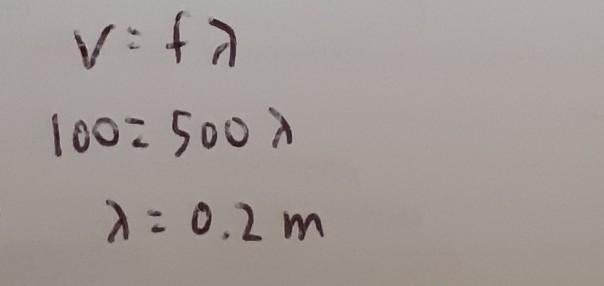 v = fλ
100 = 500 λ
λ = 0.2 m